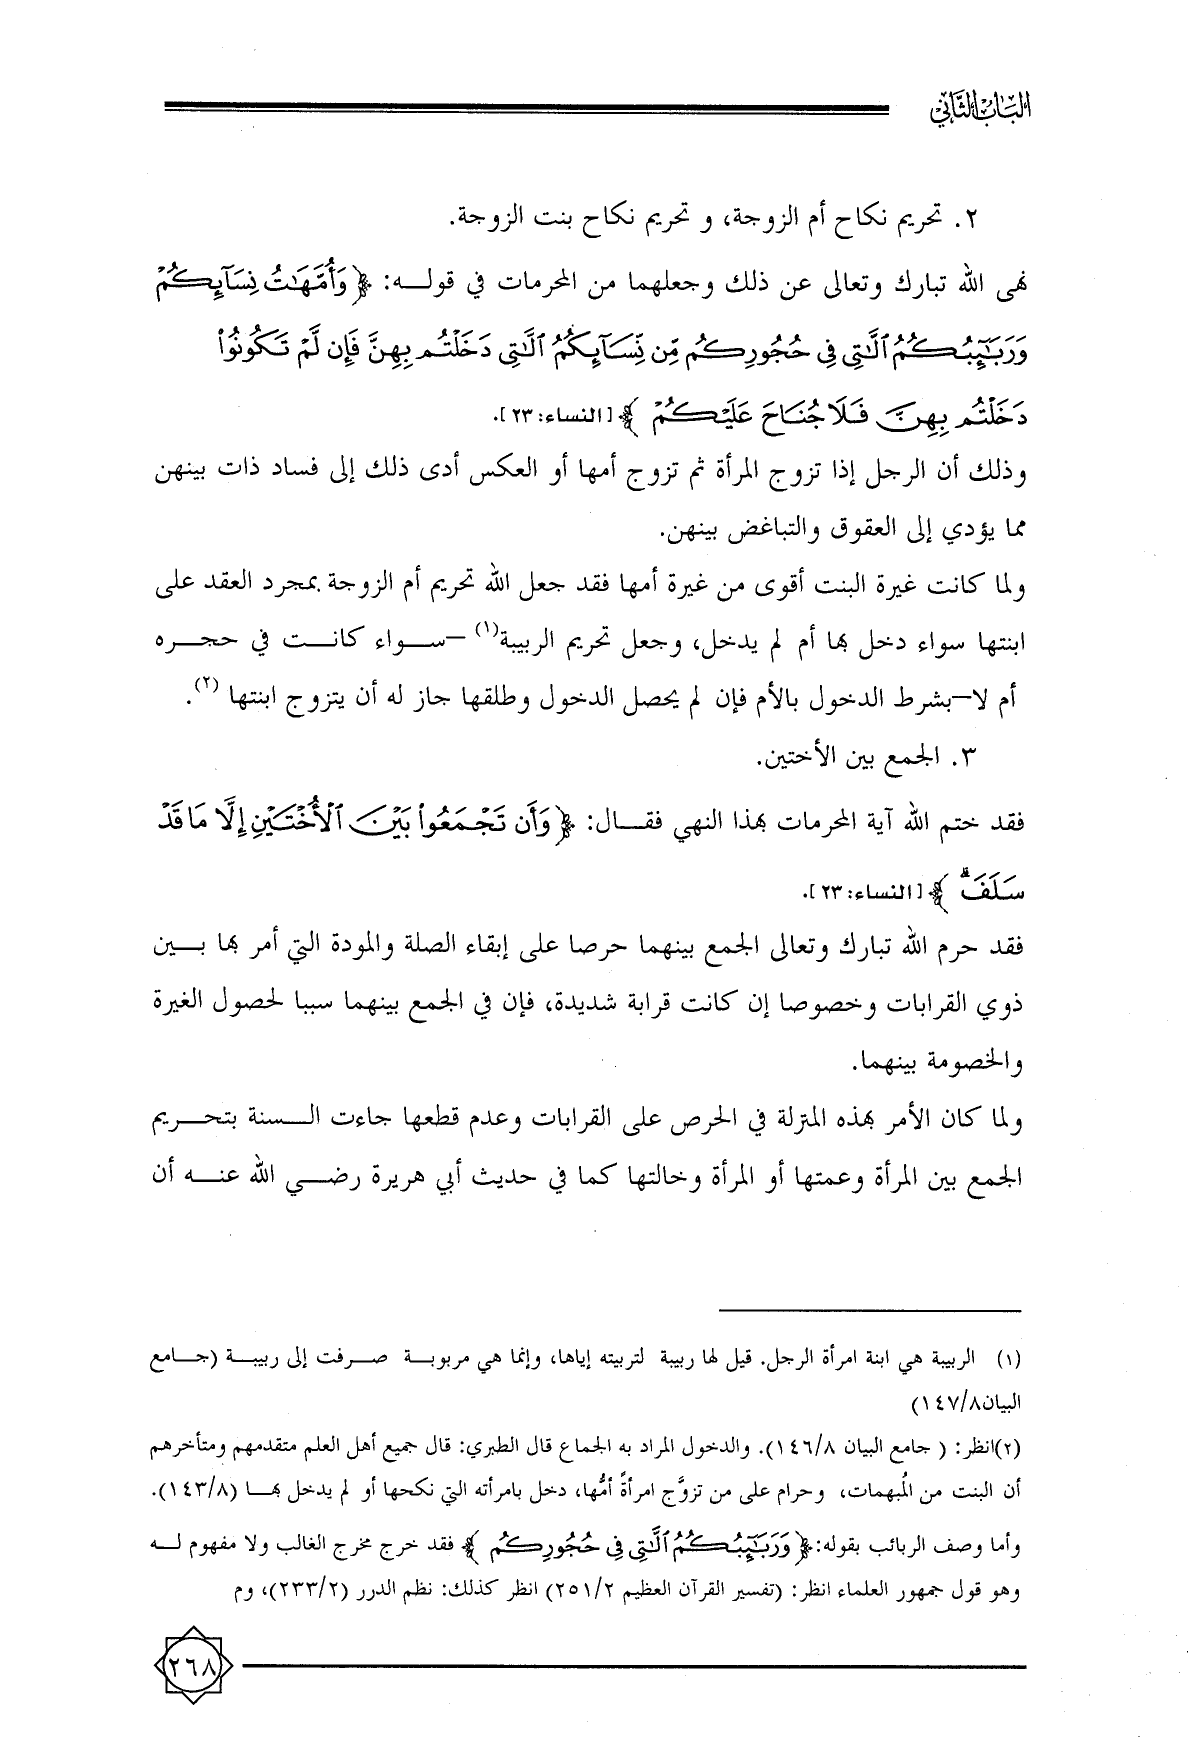 الباب الثاني
٢. تحريم نكاح أم الزوجة، و تحريم نكاح بنت الزوجة.
نهى الله تبارك وتعالى عن ذلك وجعلهما من المحرمات في قولـه: ﴿ وَأُمَّهَٰتُ نِسَآئِكُمْ
وَرَبَٰٓئِبُكُمُ ٱلَّٰتِى فِى حُجُورِكُم مِّن نِّسَآئِكُمُ ٱلَّٰتِى دَخَلْتُم بِهِنَّ فَإِن لَّمْ تَكُونُوا۟
دَخَلْتُم بِهِنَّ فَلَا جُنَاحَ عَلَيْكُمْ ﴾ [النساء: ٢٣].
وذلك أن الرجل إذا تزوج المرأة ثم تزوج أمها أو العكس أدى ذلك إلى فساد ذات بينهن
مما يؤدي إلى العقوق والتباغض بينهن.
ولما كانت غيرة البنت أقوى من غيرة أمها فقد جعل الله تحريم أم الزوجة بمجرد العقد على
ابنتها سواء دخل بها أم لم يدخل، وجعل تحريم الربيبة(١) –سواء كانت في حجره
أم لا–بشرط الدخول بالأم فإن لم يحصل الدخول وطلقها جاز له أن يتزوج ابنتها (٢).
٣. الجمع بين الأختين.
فقد ختم الله آية المحرمات بهذا النهي فقال: ﴿ وَأَن تَجْمَعُوا۟ بَيْنَ ٱلْأُخْتَيْنِ إِلَّا مَا قَدْ
سَلَفَ ۗ ﴾ [النساء: ٢٣].
فقد حرم الله تبارك وتعالى الجمع بينهما حرصا على إبقاء الصلة والمودة التي أمر بها بين
ذوي القرابات وخصوصا إن كانت قرابة شديدة، فإن في الجمع بينهما سببا لحصول الغيرة
والخصومة بينهما.
ولما كان الأمر بهذه المنزلة في الحرص على القرابات وعدم قطعها جاءت السنة بتحريم
الجمع بين المرأة وعمتها أو المرأة وخالتها كما في حديث أبي هريرة رضي الله عنه أن
(١) الربيبة هي ابنة امرأة الرجل. قيل لها ربيبة لتربيته إياها، وإنما هي مربوبة صرفت إلى ربيبة (جامع
البيان٨/١٤٧)
(٢)انظر: ( جامع البيان ٨/١٤٦). والدخول المراد به الجماع قال الطبري: قال جميع أهل العلم متقدمهم ومتأخرهم
أن البنت من المُبهمات، وحرام على من تزوَّج امرأةً أمُّها، دخل بامرأته التي نكحها أو لم يدخل بها (٨/١٤٣).
وأما وصف الربائب بقوله:﴿ وَرَبَٰٓئِبُكُمُ ٱلَّٰتِى فِى حُجُورِكُم ﴾ فقد خرج مخرج الغالب ولا مفهوم له
وهو قول جمهور العلماء انظر: (تفسير القرآن العظيم ٢/٢٥١) انظر كذلك: نظم الدرر (٢/٢٣٣)، وم
٢٦٨